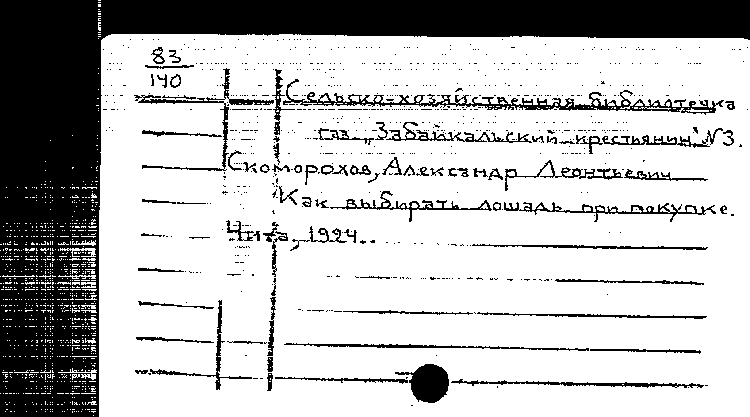 83
140
Сельско-хозяйственная библиотечка
газ. „Забайкальский крестьянин" №3.
Скоморохов, Александр Леонтьевич
Как выбирать лошадь при покупке.
Чита, 1924..